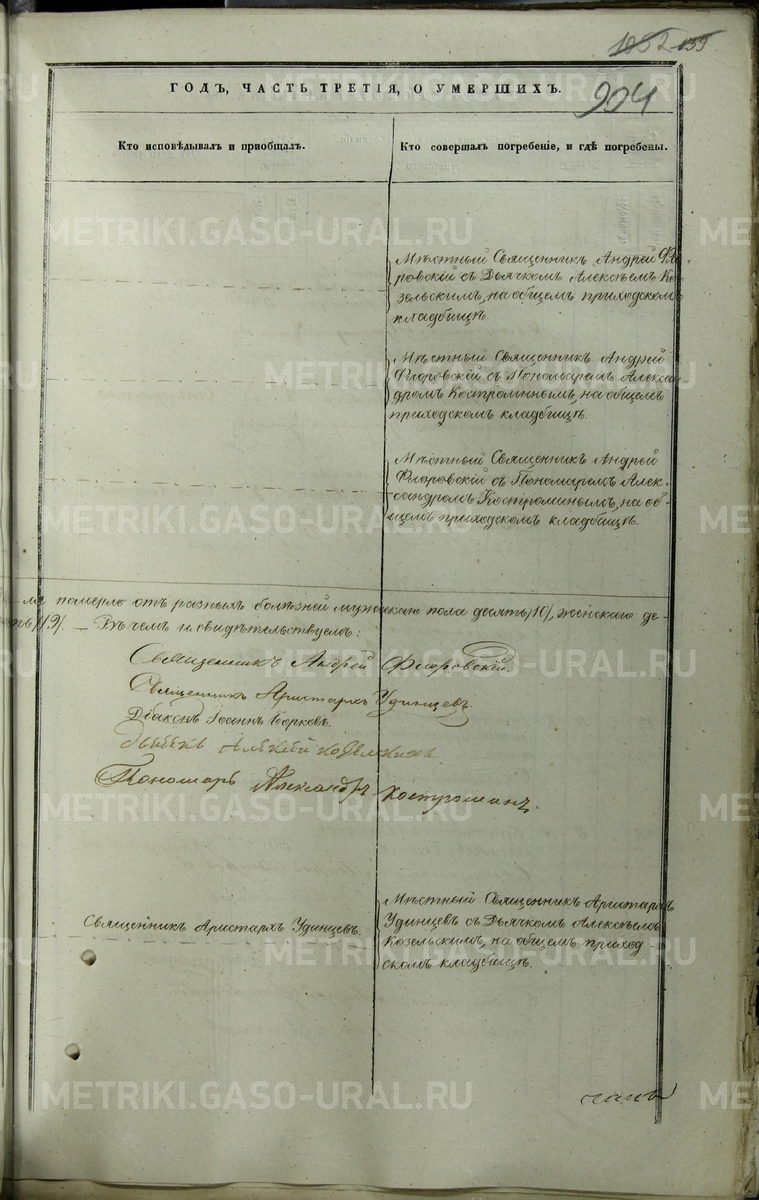 1052 159
904
ГОДЪ, ЧАСТЬ ТРЕТІЯ, О УМЕРШИХЪ.
Кто исповѣдывалъ и приобщалъ.
Кто совершалъ погребеніе, и гдѣ погребены.
Мѣстный Священникъ Андрей Фло-
ровскій съ Дьячкомъ Алексѣемъ Ко-
зельскимъ, на общемъ приходскомъ
кладбищѣ.
Мѣстный Священникъ Андрей
Флоровскій съ Пономаремъ Алексан-
дромъ Костроминымъ, на общемъ
приходскомъ кладбищѣ.
Мѣстный Священникъ Андрей
Флоровскій съ Пономаремъ Алек-
сандромъ Костроминымъ, на об-
щемъ приходскомъ кладбищѣ.
ля померло отъ разныхъ болѣзней мужескаго пола десять /10/, женскаго де-
ть /19/. — Въ чемъ и свидѣтельствуемъ:
Священникъ Андрей Флоровскій.
Священникъ Аристархъ Удинцевъ.
Діаконъ Іоаннъ Борковъ.
дьячекъ Алексѣй
Пономарь Александръ Костроминъ.
Священникъ Аристархъ Удинцевъ.
Мѣстный Священникъ Аристархъ
Удинцевъ съ Дьячкомъ Алексѣемъ
Козельскимъ, на общемъ приход-
скомъ кладбищѣ.
METRIKI.GASO-URAL.RU